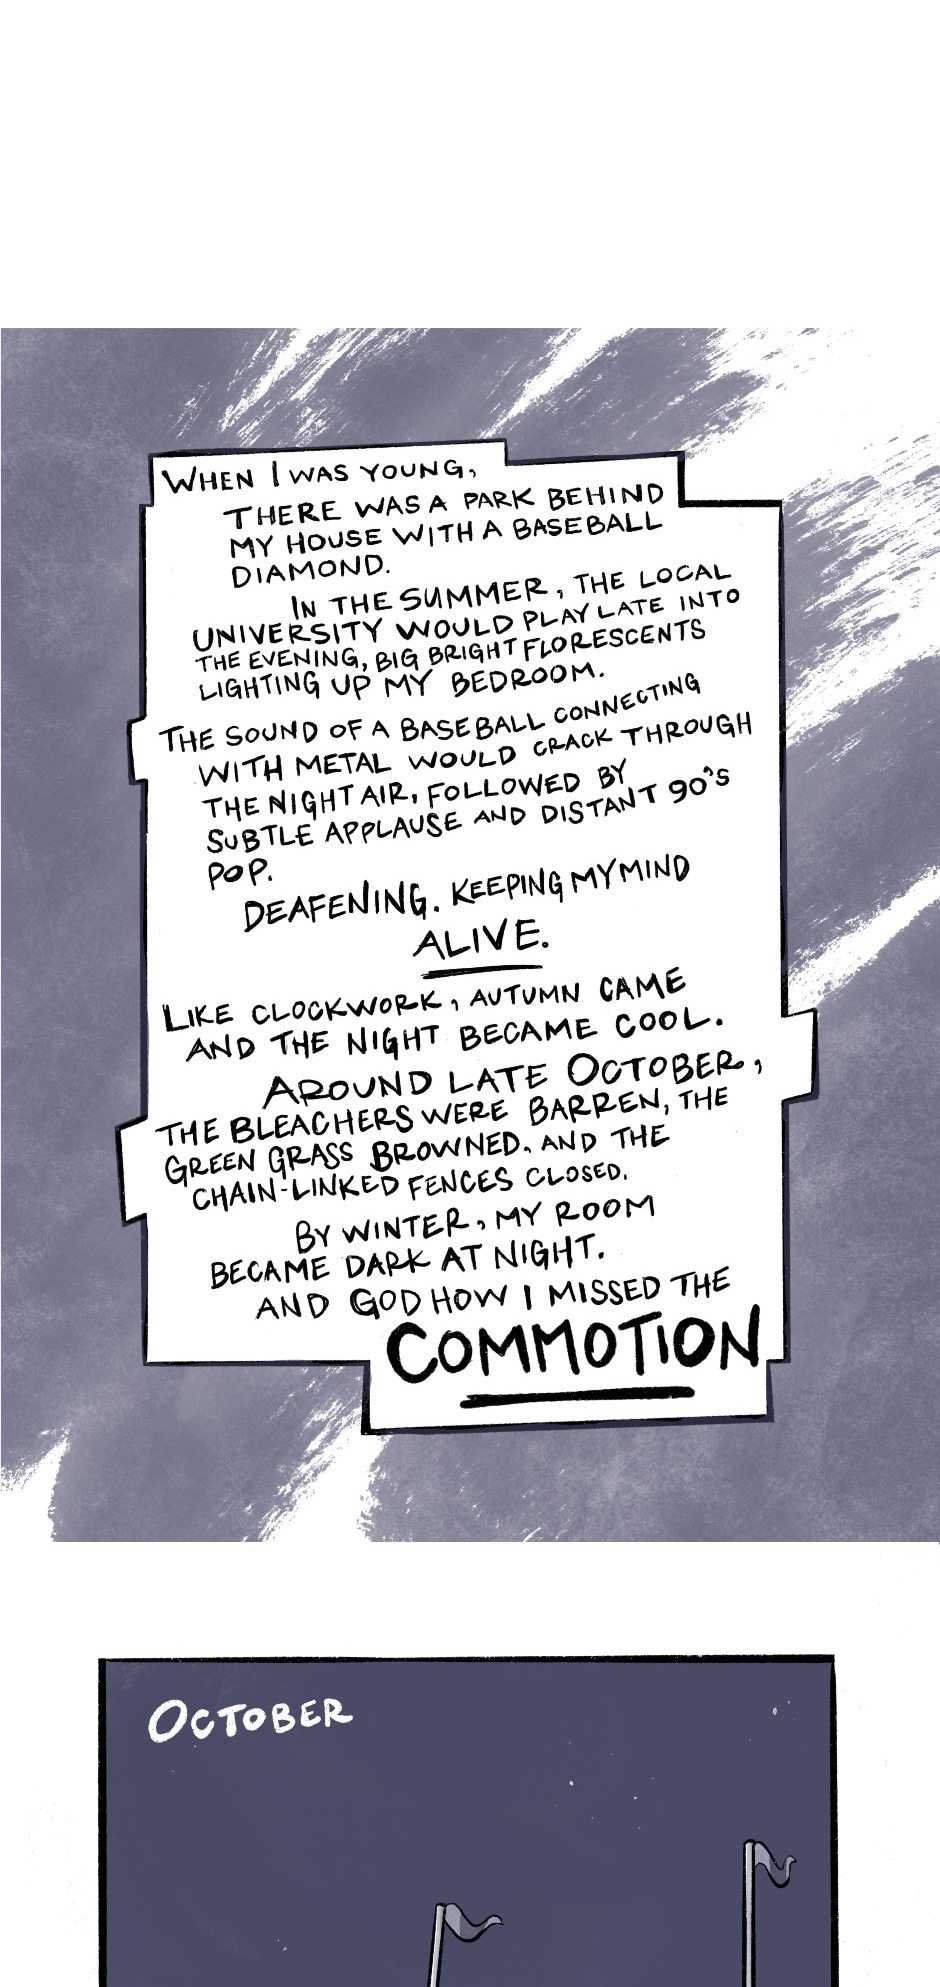 WHEN I WAS YOUNG,
THERE WAS A PARK BEHIND
MY HOUSE WITH A BASEBALL
DIAMOND.
IN THE SUMMER, THE LOCAL
UNIVERSITY WOULD PLAY LATE INTO
THE EVENING, BIG BRIGHT FLORESCENTS
LIGHTING UP MY BEDROOM.
THE SOUND OF A BASEBALL CONNECTING
WITH METAL WOULD CRACK THROUGH
THE NIGHT AIR, FOLLOWED BY
SUBTLE APPLAUSE AND DISTANT 90'S
POP.
DEAFENING. KEEPING MY MIND
ALIVE.
LIKE CLOCKWORK, AUTUMN CAME
AND THE NIGHT BECAME COOL.
AROUND LATE OCTOBER,
THE BLEACHERS WERE BARREN, THE
GREEN GRASS BROWNED. AND THE
CHAIN-LINKED FENCES CLOSED.
BY WINTER, MY ROOM
BECAME DARK AT NIGHT.
AND GOD HOW I MISSED THE
COMMOTION
OCTOBER